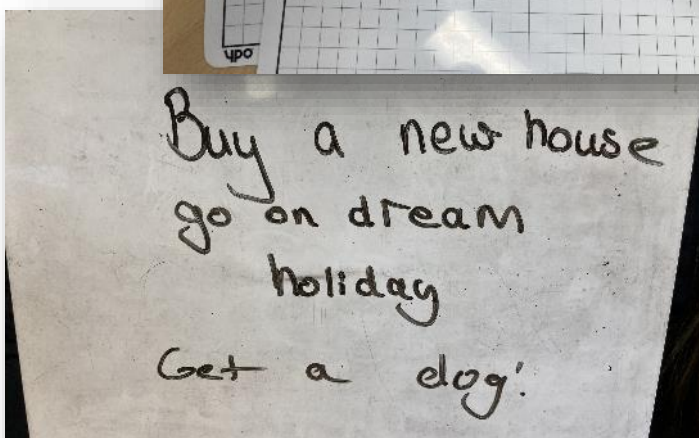 ypo
Buy a new house
go on dream
holiday
Get a dog!